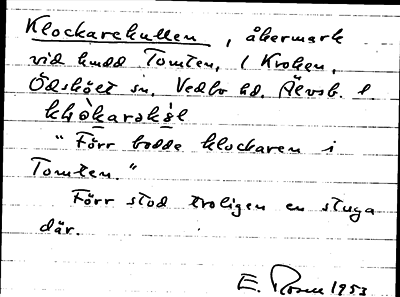 Klockarekullen, åkermark
vid hmdd Tomten, 1 Kroken,
Ödskölt sn, Vedbo hd, Älvsb. l.
"Förr bodde klockaren i
Tomten."
Förr stod troligen en stuga
där.
E. Rosen 1953